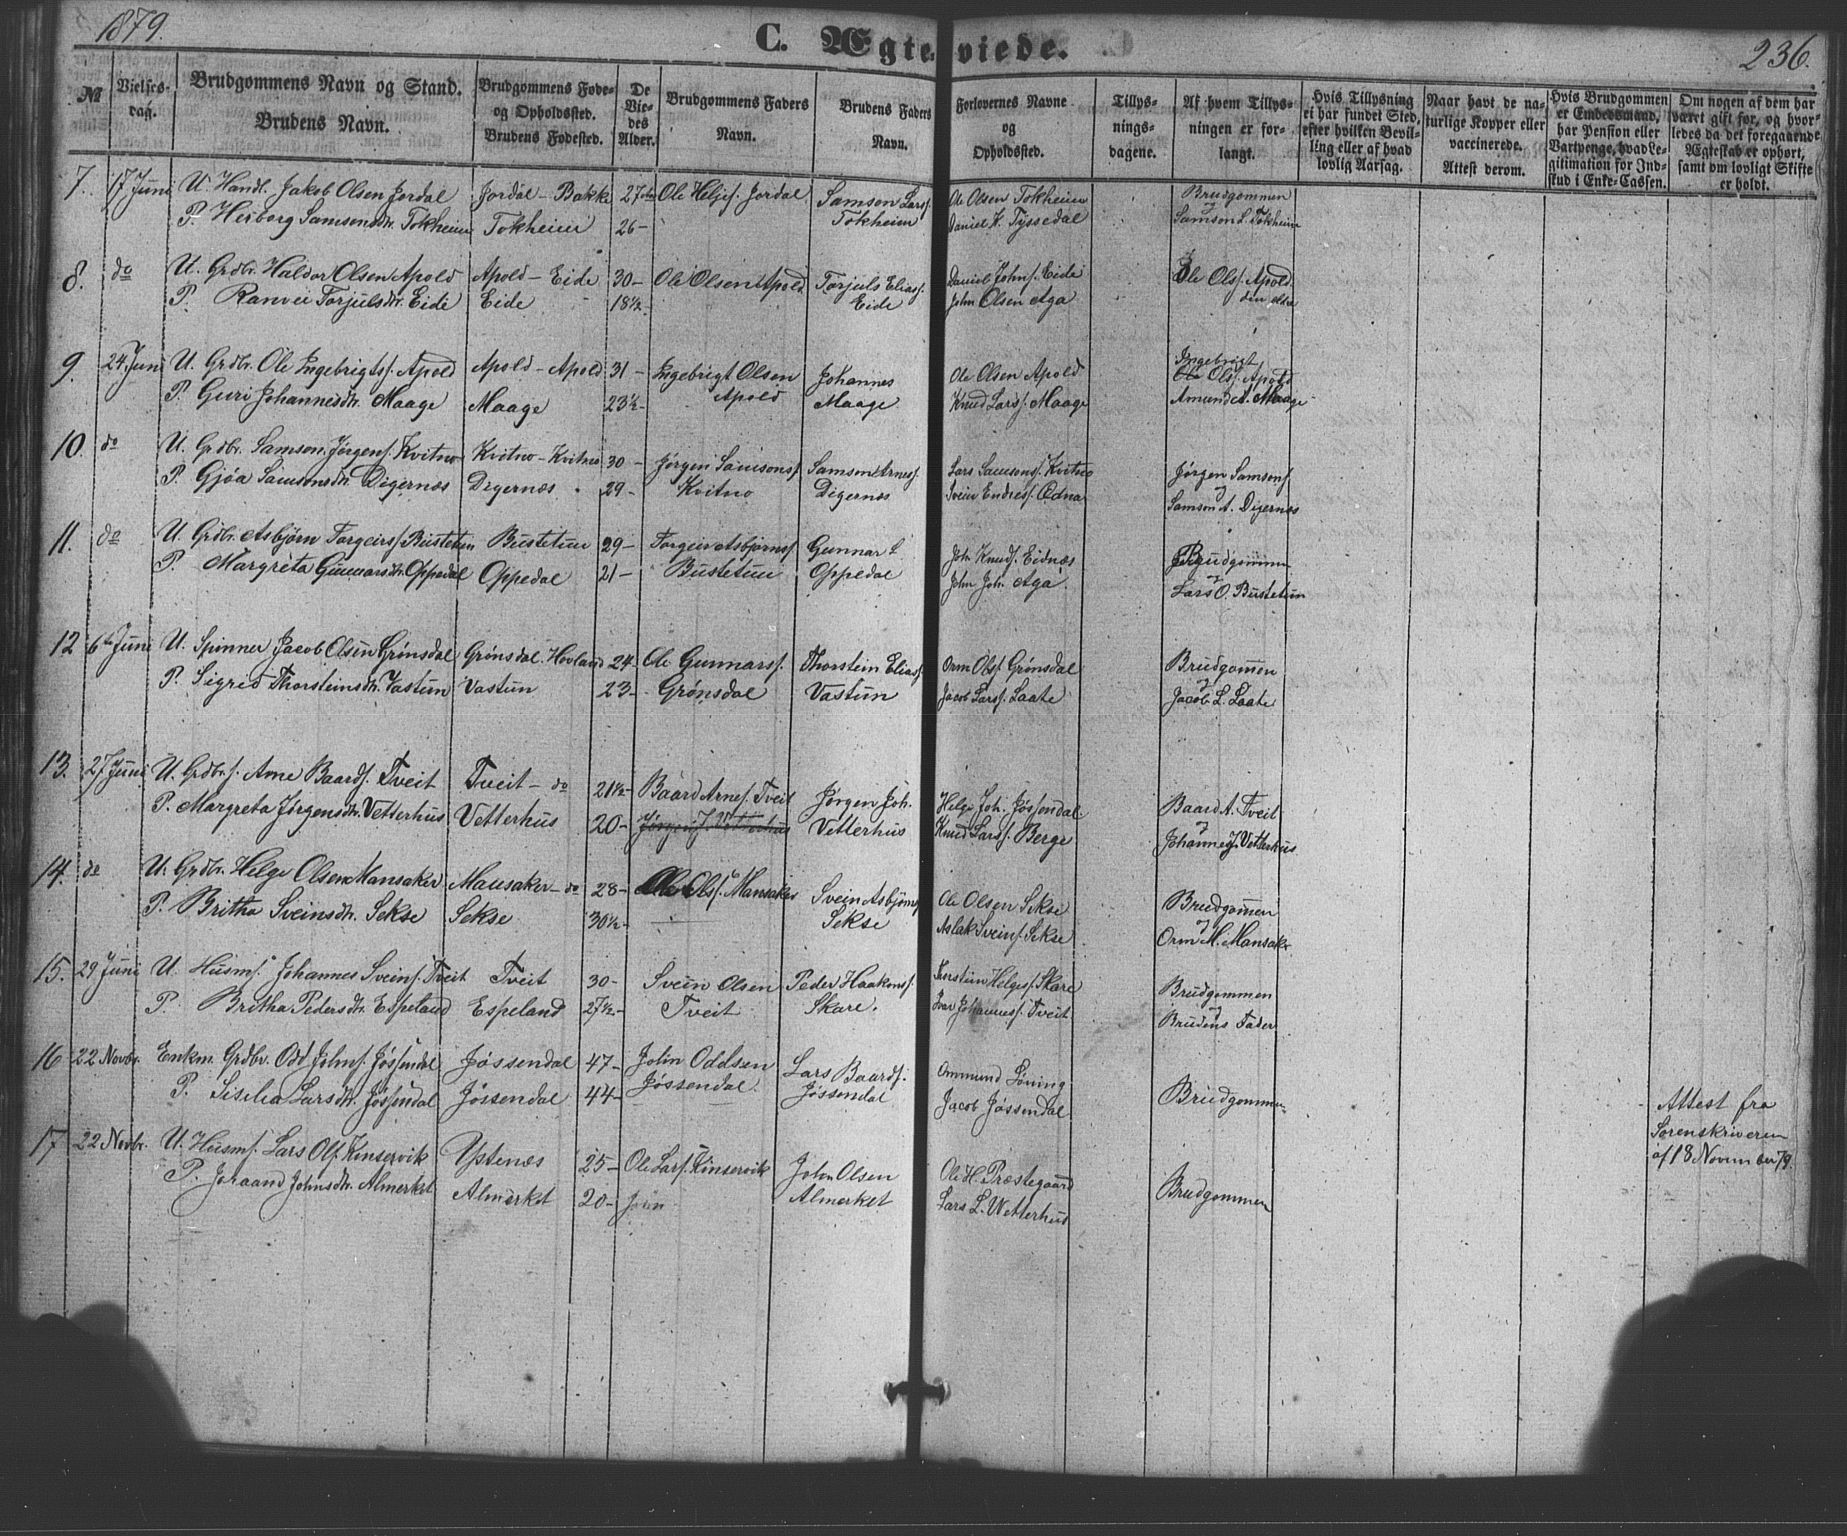 1879.
C. Ægteviede.
236.
№
Vielses-dag.
Brudgommens Navn og Stand.
Brudens Navn.
Brudgommens Føde- og Opholdssted.
Brudens Fødested.
De Viedes Alder.
Brudgommens Faders Navn.
Brudens Faders Navn.
Forlovernes Navne og Opholdsted.
Tillysningsdagene.
Af hvem Tillysningen er forlangt.
Hvis Tillysning ei har fundet Sted, efter hvilken Bevilling eller af hvad lovlig Aarsag.
Naar havt de naturlige Kopper eller vaccinerede. Attest derom.
Hvis Brudgommen er Embedsmand, har Pension eller Vartpenge, hvad Legitimation for Indskud i Enke-Cassen.
Om nogen af dem har været gift før, og hvorledes da det foregaaende Ægteskab er ophørt, samt om lovligt Skifte er holdt.
7. 17 Juni U. Handl. Jakob Olsen Jordal Jordal - Bakke 27 Ole Heljes. Jordal Samson Lars. Ole Olsen Tokheim Brudgommen
P. Herborg Samsonsdr. Tokheim Tokheim 26- Tokheim Daniel K. Tyssedal Samson L. Tokheim
8. do U. Grdbr. Haldor Olsen Apold Apold - Eide 30- Ole Olsen Apold Torjuls Elias. Daniel Johns. Eide Ole Ols. Apold
P. Ranvei Torjulsdr. Eide Eide 18½- Eide John Olsen Aga den eldre
9. 24 Juni U. Grdbr. Ole Ingebrigts. Apold Apold - Apold 31- Ingebrigt Olsen Johannes Ole Olsen Apold Ingebrigt Ols. Apold
P. Guri Johannesdr. Maage Maage 23½- Apold Maage Knud Lars. Maage Amund A. Maage
10. do U. Grdbr. Samson Jørgens. Kvitno Kvitno - Kvitno 30- Jørgen Samsons. Samson Arnes. Lars Samsons. Kvitno Jørgen Samsons.
P. Gjøa Samsonsdr. Digernæs Digernæs 29- Kvitno Digernæs Svein Endres. Ædna og Samson A. Digernæs
11. do U. Grdbr. Asbjørn Torgeirs. Bustetun Bustetun 29- Torgeir Asbjørns. Gunnar L. Joh. Knuds. Eidnæs Brudgommen
P. Margreta Gunnarsdr. Oppedal Oppedal 21- Bustetun Oppedal John Joh. Aga og Lars O. Bustetun
12 6te Juni U. Spinner Jacob Olsen Grønsdal Grønsdal. Hovland 24- Ole Gunnars. Thorstein Elias. Orm Ols. Grønsdal Brudgommen
P. Sigrid Thorsteinsdr. Vastun Vastun 23- Grønsdal Vastun Jacob Lars. Laate og Jacob L. Laate
13. 27 Juni U. Grdbrs. Arne Baards. Tveit Tveit - do 21½- Baard Arnes. Tveit Jørgen Joh. Helge Joh. Jøssendal Baard A. Tveit
P. Margreta Jørgensdr. Vetterhus Vetterhus 20- Jørgen J. Vetterhus Vetterhus Knud Lars. Berge og Johannes J. Vetterhus
14. do U. Grdbr. Helge Olsen Mansaker Mansaker - do 28- Ole Ols. Mansaker Svein Asbjørns. Ole Olsen Sekse Brudgommen
P. Britha Sveinsdr. Sekse Sekse 30½- Sekse Aslak Sveins. Sekse og Orm M. Mansaker
15. 29 Juni U. Husm. Johannes Sveins. Tveit Tveit 30- Svein Olsen Peder Haakons. Thorstein Helges. Skare Brudgommen
P. Britha Pedersdr. Espeland Espeland 27½- Tveit Skare. Iver Johannes. Tveit og Brudens Fader
16 22 Novbr. Enkm. Grdbr. Odd Johns. Jøssendal Jøssendal 47- John Oddsen Lars Baards. Ommund Løning Brudgommen
P. Siselia Larsdr. Jøssendal Jøssendal 44- Jøssendal Jøssendal Jacob Jøssendal
Attest fra Sorenskriveren af 18 November 79.
17 22 Novbr. U. Husm. Lars Ols. Kinservik Ystenæs 25- Ole Lars. Kinservik John Olsen Ole H. Præstegaard Brudgommen
P. Johaand Johnsdr. Almerket Almerket 20- John Almerket Lars L. Wetterhus